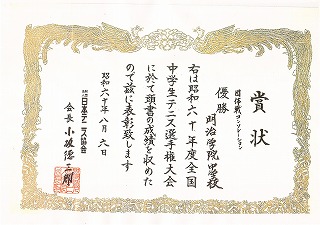 賞状
団体戦コンソレーション
優勝 明治学院中学校
右は昭和六十年度全国
中学生テニス選手権大会
に於て頭書の成績を収めた
ので茲に表彰致します
昭和六十年八月九日
日本テニス協会
会長 小坂徳三郎